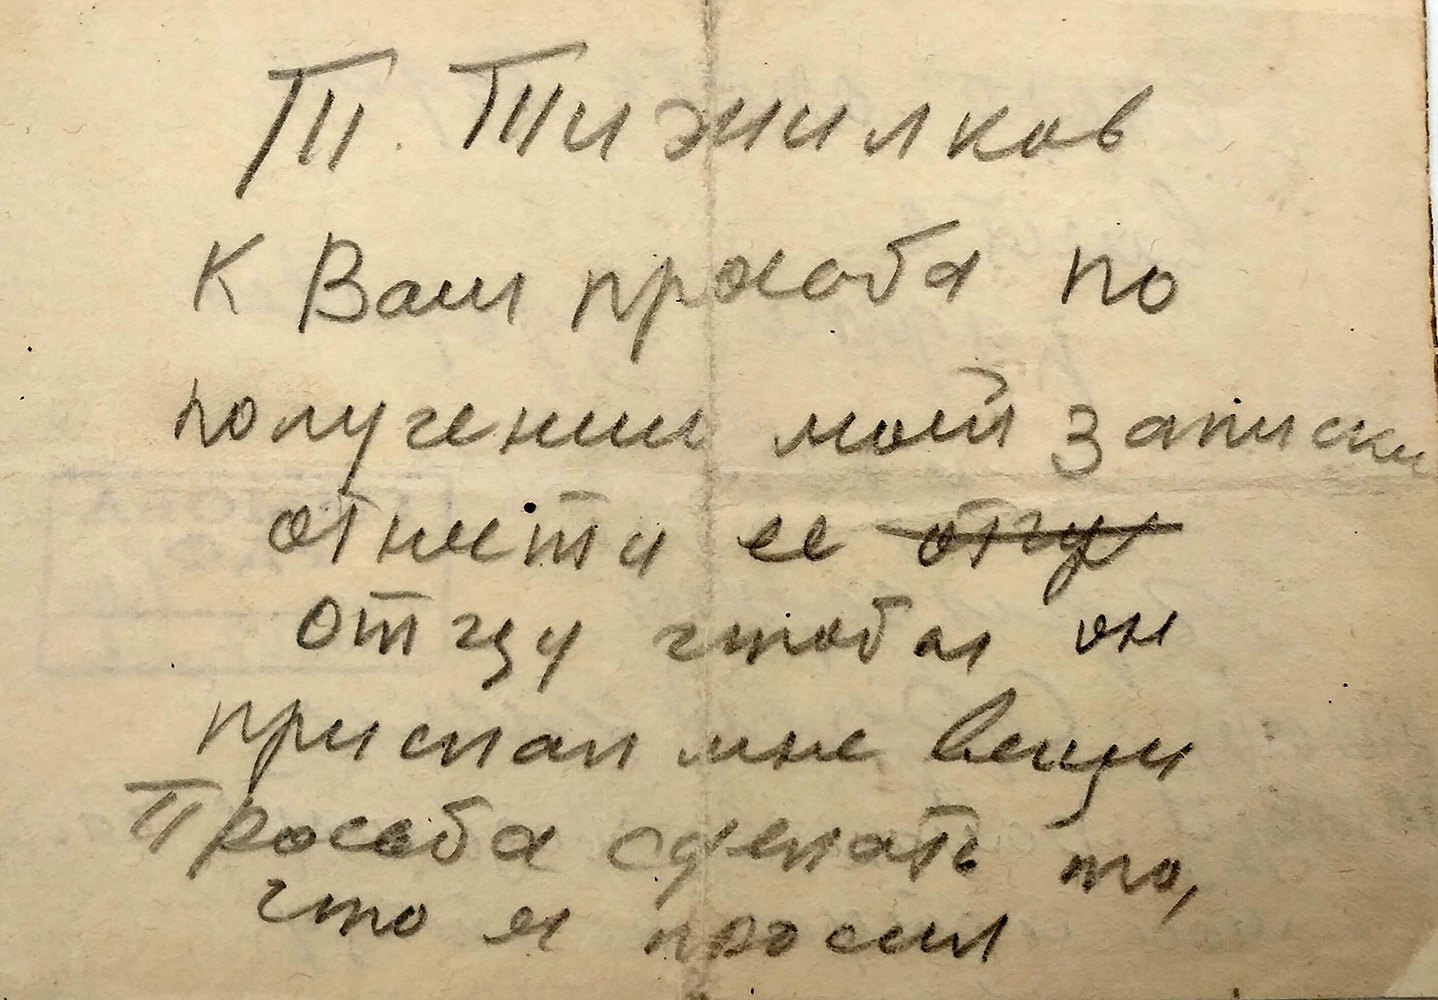 Т. Тижилков
К Вам просьба по
получении моей записки
отнести ее отцу
отцу чтобы он
прислал мне вещи
Просьба сделать то,
что я просил